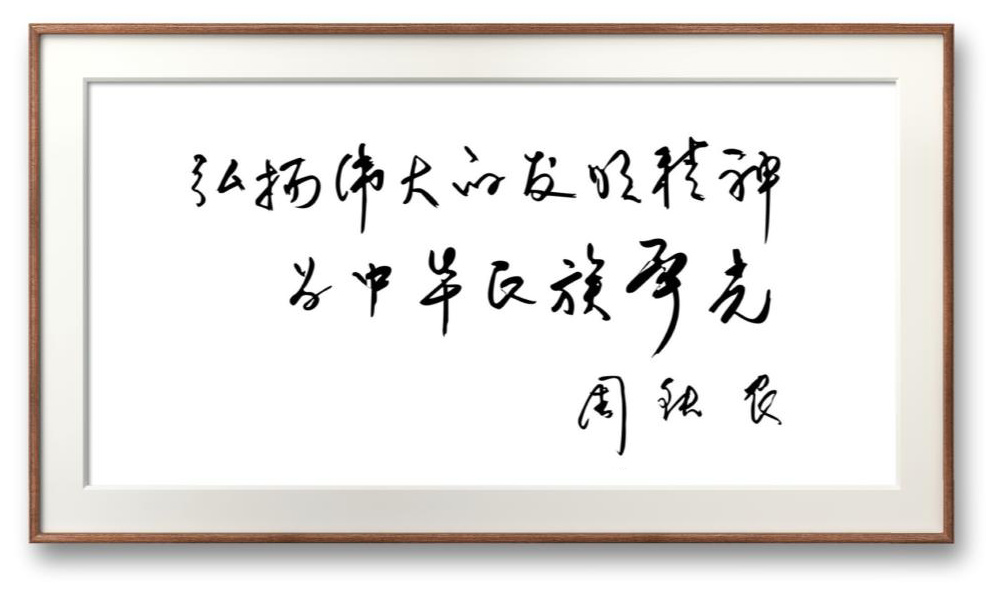 弘扬伟大的发明精神
为中华民族争光
周铁农